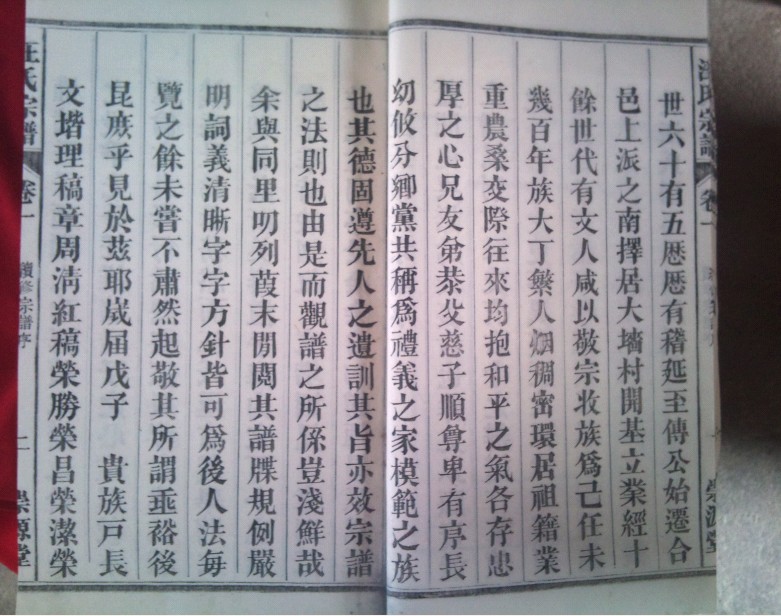 世六十有五厯厯有稽延至傳公始遷合
邑上派之南擇居大墻村開基立業經十
餘世代有文人咸以敬宗收族爲己任未
幾百年族大丁繁人烟稠密環居祖籍業
重農桑交際往來均抱和平之氣各存忠
厚之心兄友弟恭父慈子順尊卑有序長
幼攸分鄉黨共稱爲禮義之家模範之族
也其德固遵先人之遺訓其旨亦效宗譜
之法則也由是而觀譜之所係豈淺鮮哉
余與同里叨列葭末閒閱其譜牒規例嚴
明詞義清晰字字方針皆可爲後人法每
覽之餘未嘗不肅然起敬其所謂垂裕後
昆庶乎見於茲耶歲屆戊子 貴族戸長
文堦理稿章周淸紅稿榮勝榮昌榮潔榮
汪氏宗譜 卷一 續修宗譜序 二 崇源堂